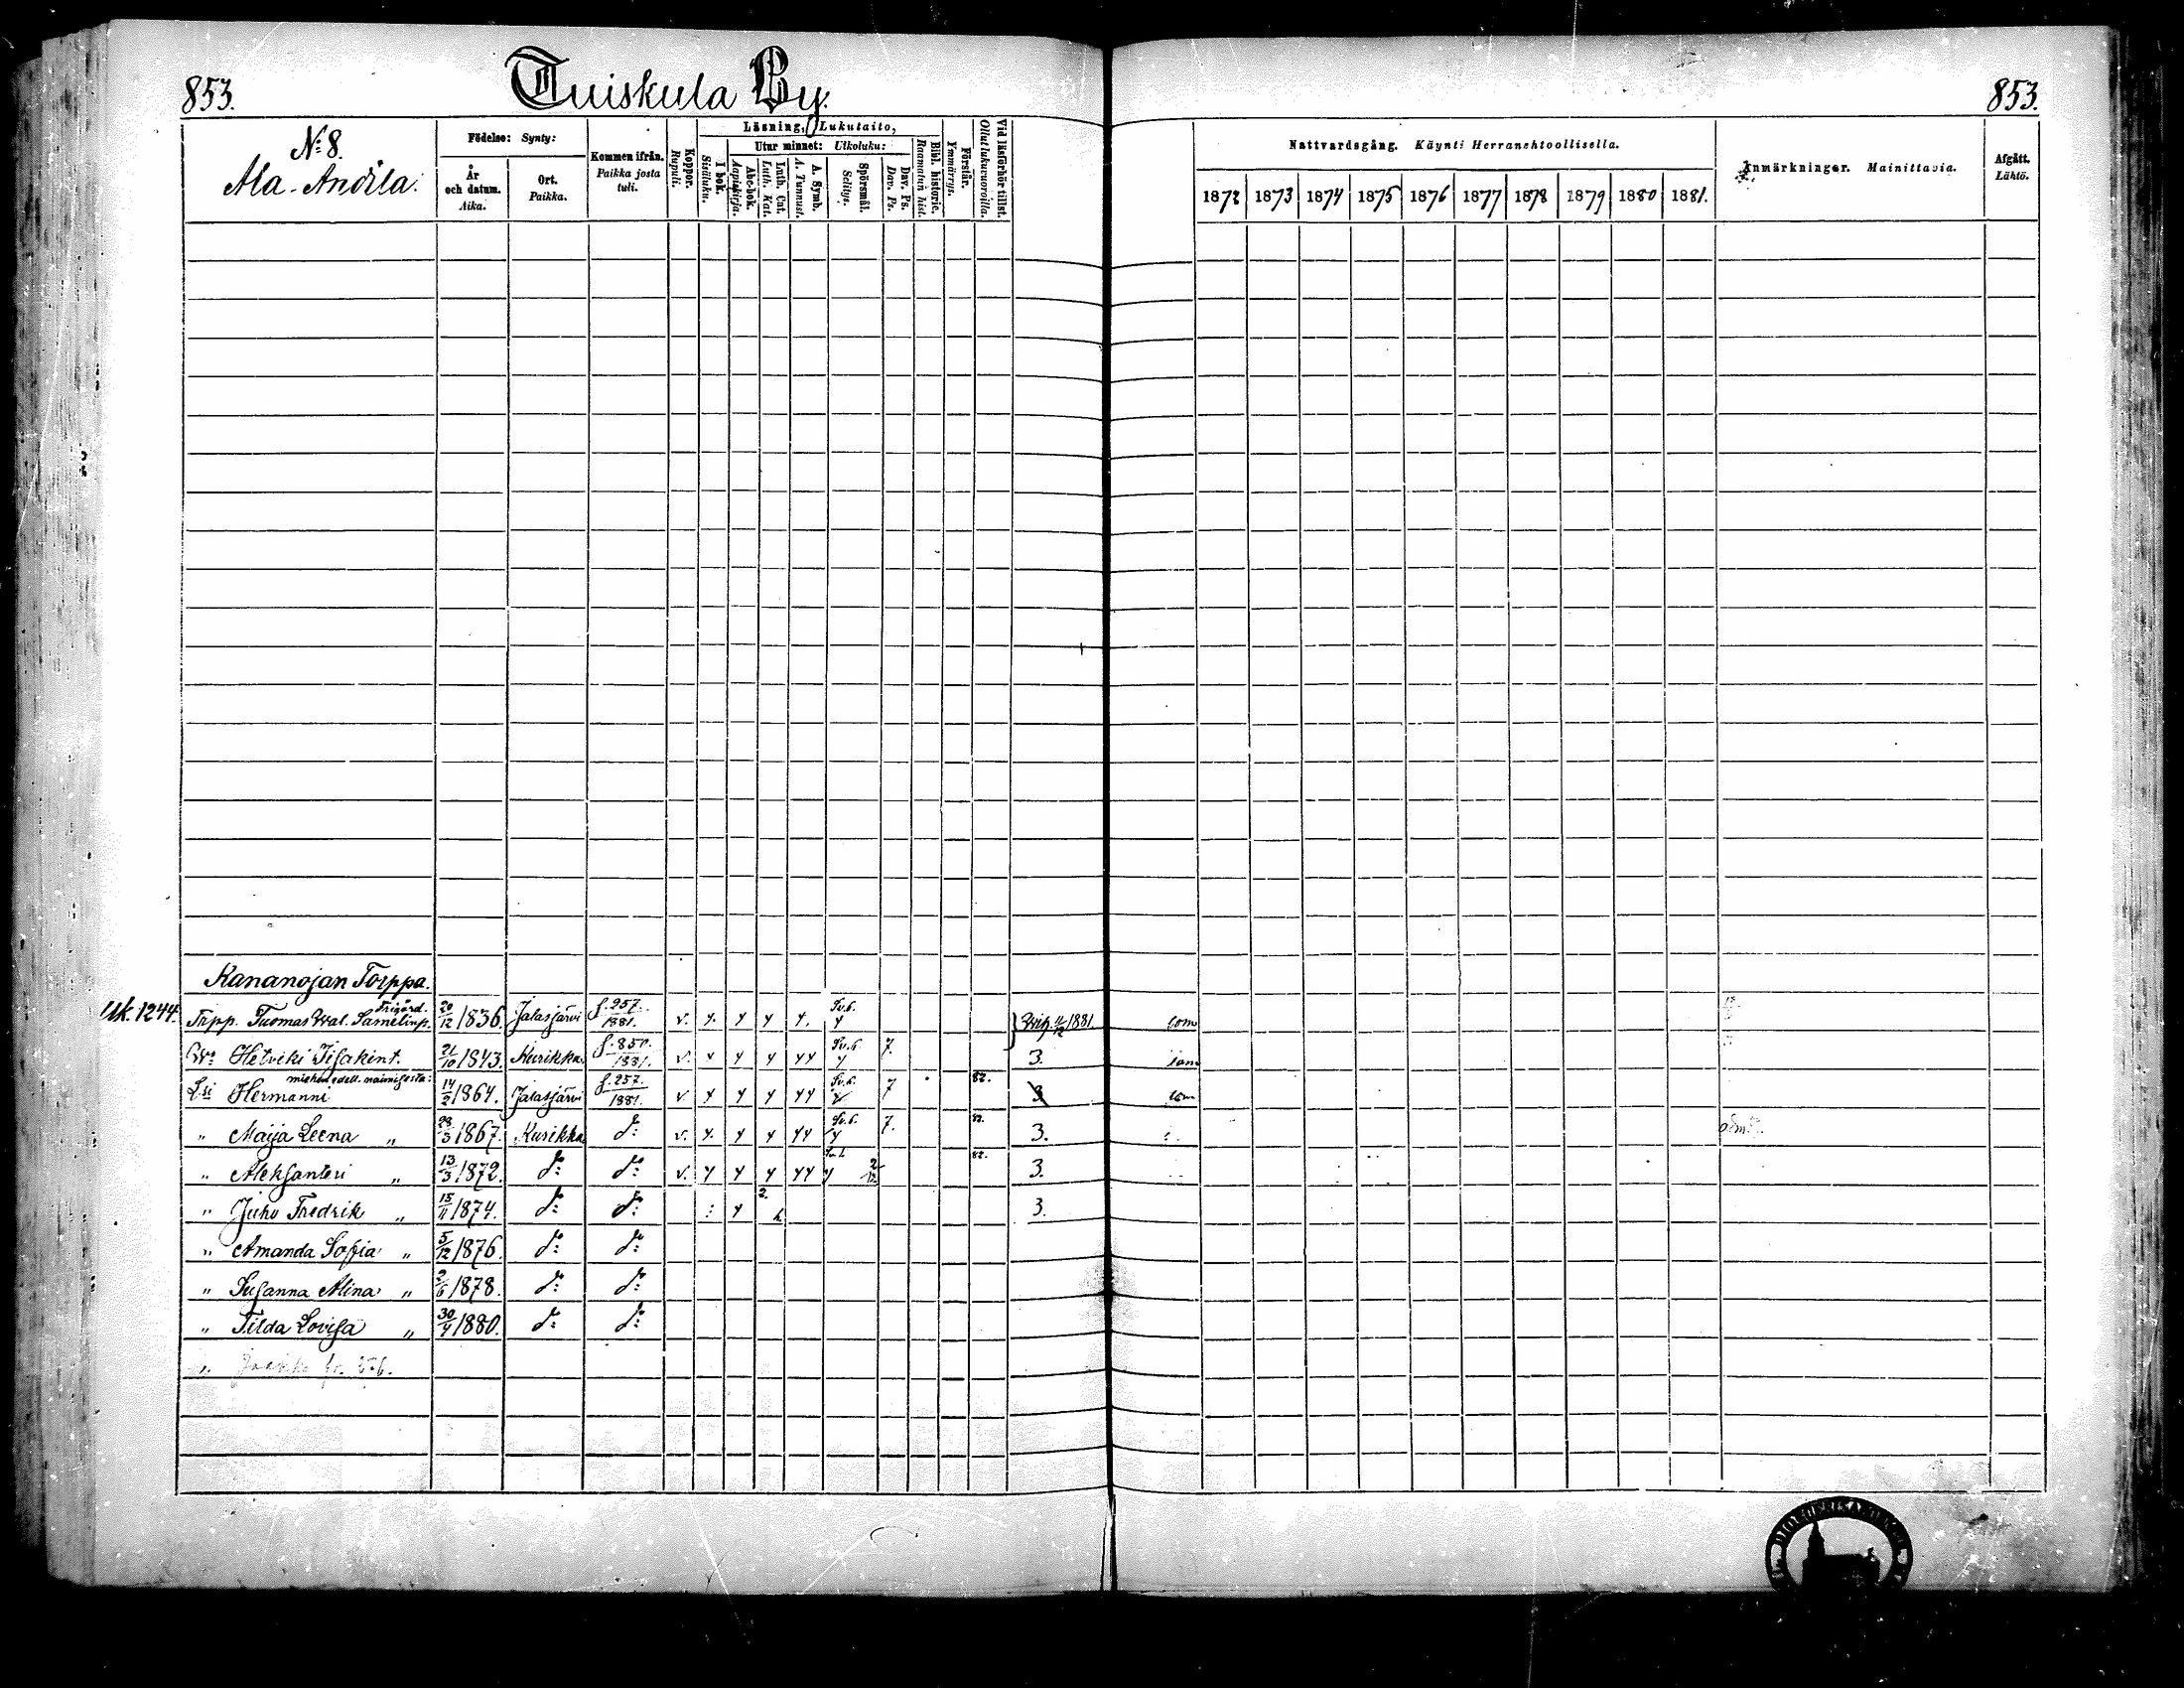 853.
Tuiskula By.
853.
No 8.
Ala-Andila.
Födelse: Synty:
År och datum. Aika.
Ort. Paikka.
Kommen ifrån. Paikka josta tuli.
Koppor. Rupuli.
Läsning, Lukutaito,
I bok. Sisäluku.
Utur minnet: Ulkoluku:
Abc-bok. Aapiskirja.
Luth. Cat. Luth. Kat.
A. Symb. A. Tunnust.
Spörsmål. Selitys.
Dav. Ps. Dav. Ps.
Bibl. historie. Raamatun hist.
Förstår. Ymmärrys.
Vid läsförhör tillst. Ollut lukuvuoroilla.
Nattvardsgång. Käynti Herranehtoollisella.
1872 1873 1874 1875 1876 1877 1878 1879 1880 1881.
Anmärkningar. Mainittavia.
Afgått. Lähtö.
Kananojan Torppa.
Uk. 1244. Torpp. Tuomas Wal. Samelinp. 20/12 1836. Jalasjärvi f. 957. 1881. v. Sv. 6. 11/12 1881.
Wo Hetviki Iisakint. 21/10 1843. Kurikka 1881. v. Sv. 6. 7. 3.
miehen edell. naimisesta:
L:si Hermanni 14/2 1864. Jalasjärvi f. 257. 1881. v Sv. 6. 7 82. 3
" Maija Leena " 1867. Kurikka do: v. Sv. 6. 7. 82. 3.
" Aleksanteri " 13/3 1872. do: do: v. 82. 3.
" Juho Fredrik " 15/11 1874. do: do: 3.
" Amanda Sofia " 5/12 1876. do: do:
" Susanna Alina " 2/6 1878. do: do:
" Tilda Lovisa " 30/4 1880. do: do: